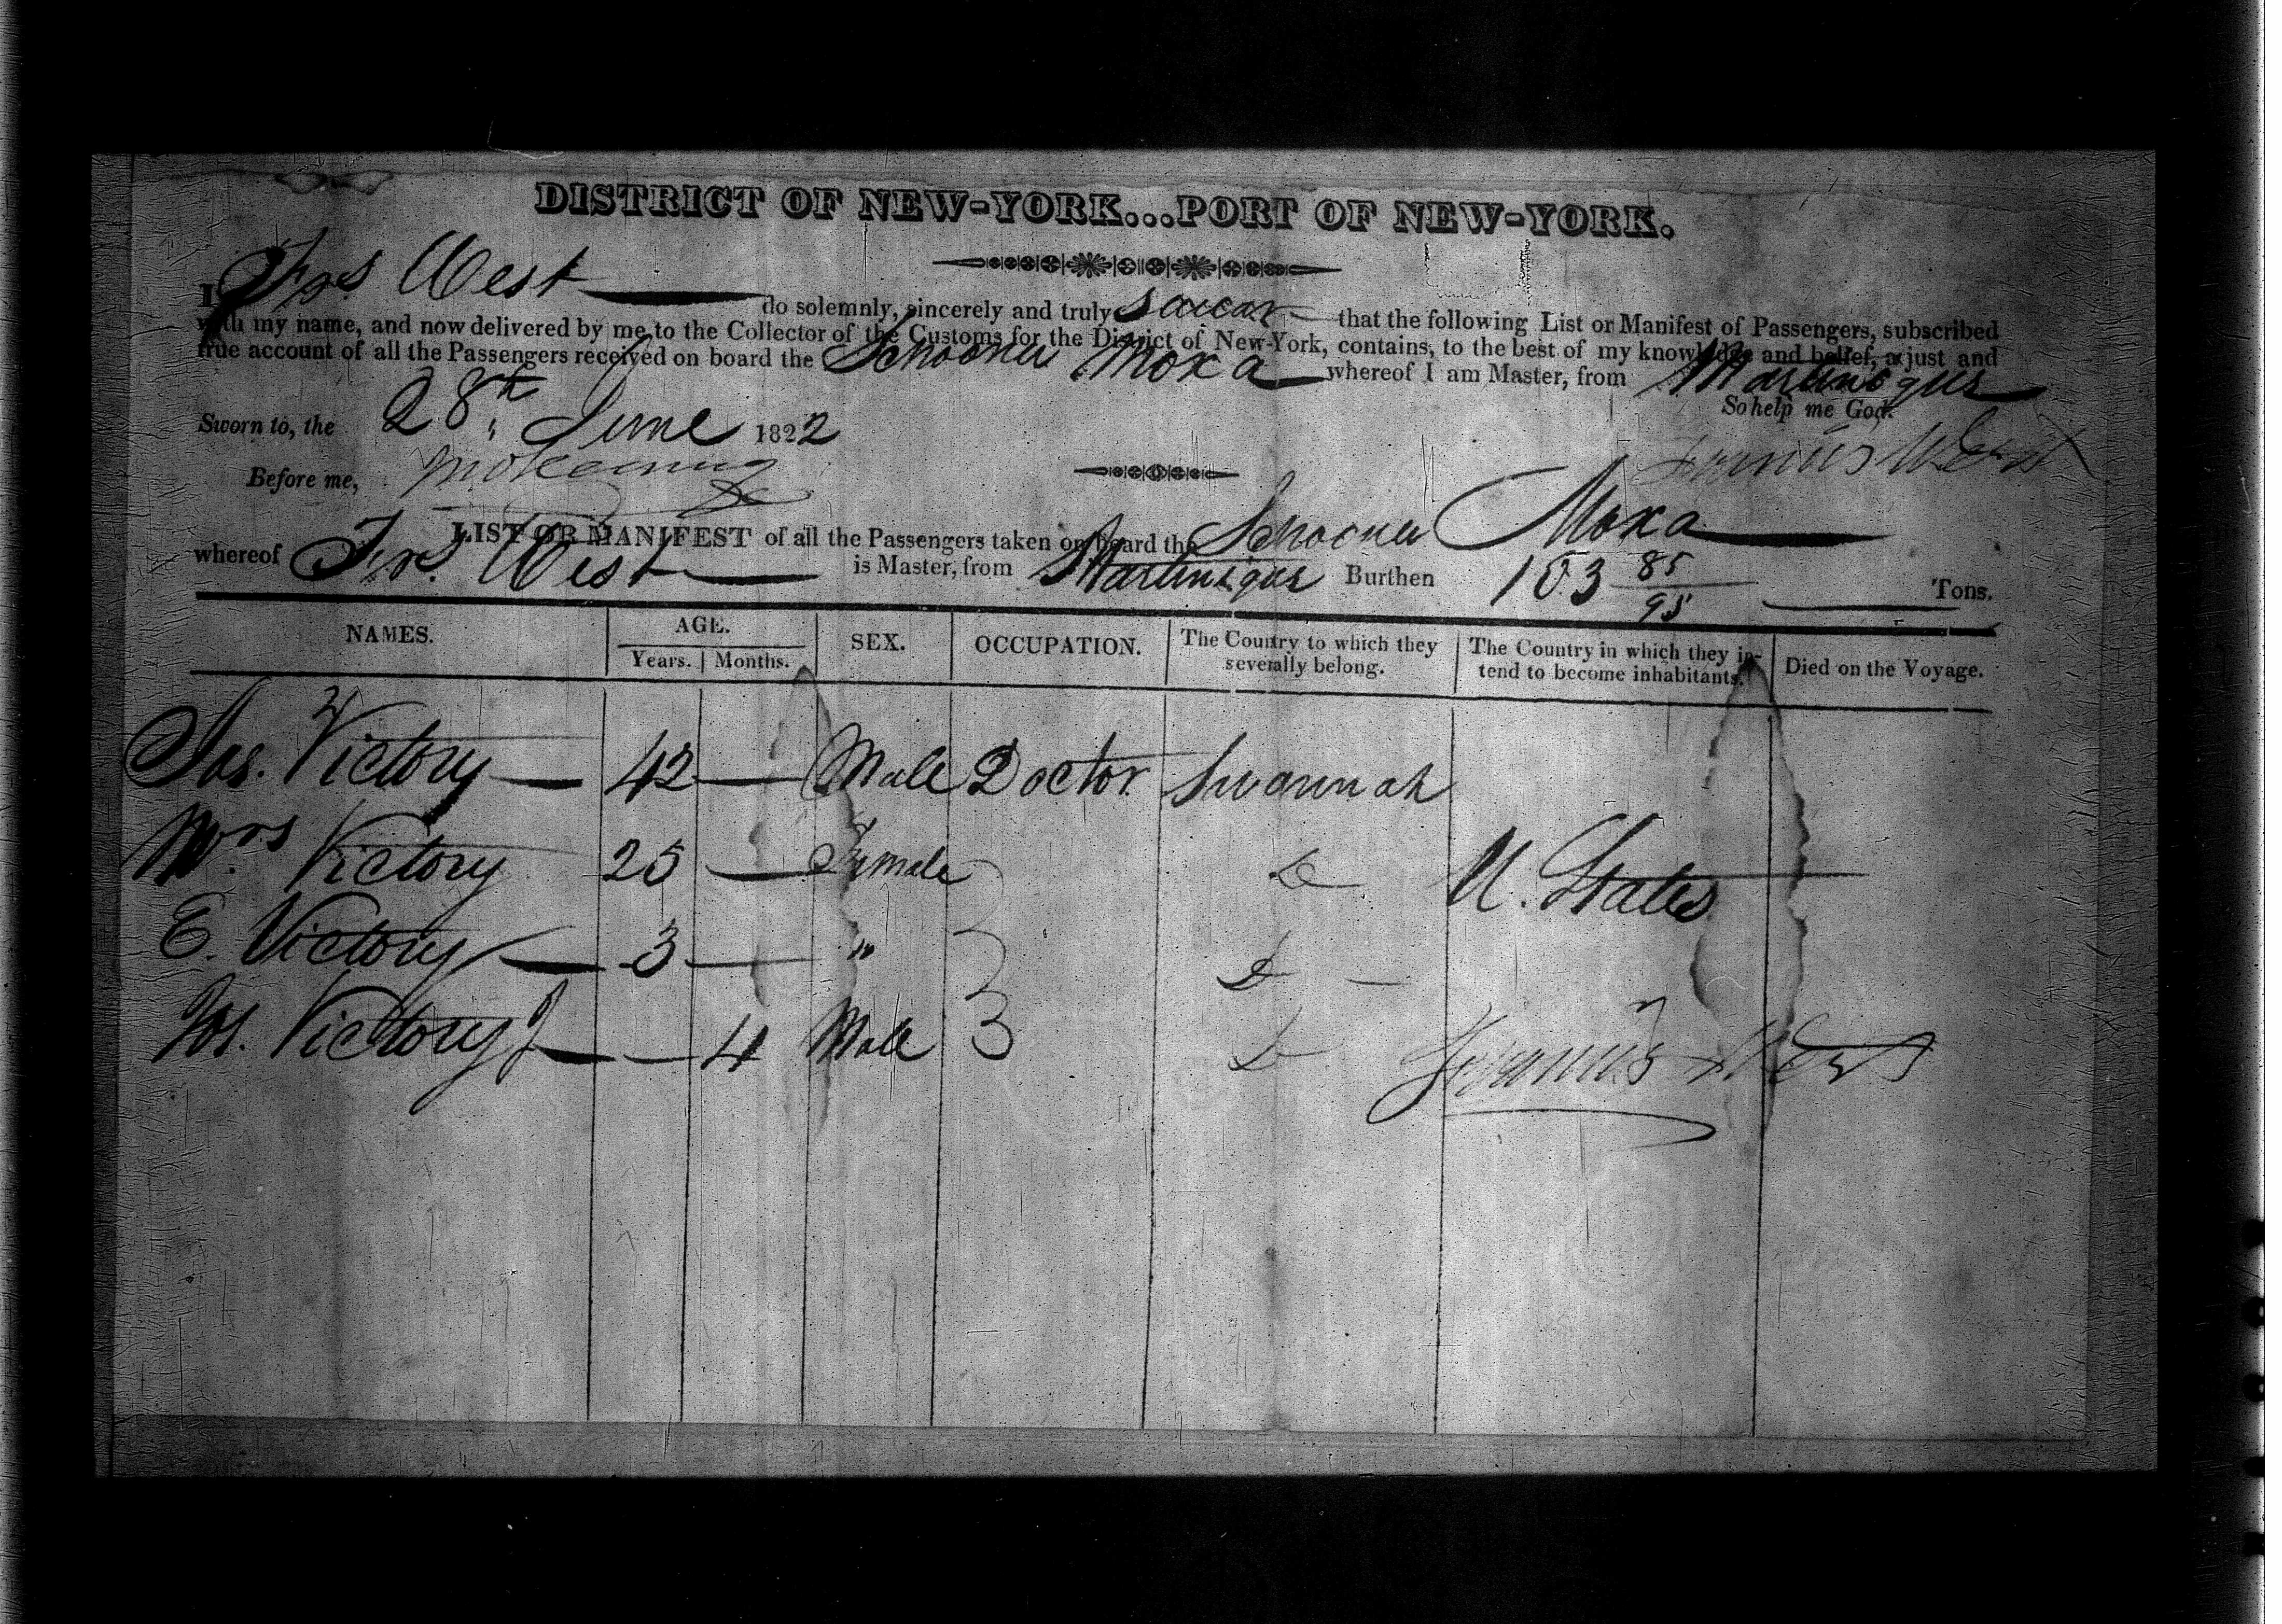 DISTRICT OF NEW-YORK...PORT OF NEW-YORK.
I Frs West do solemnly, sincerely and truly swear that the following List or Manifest of Passengers, subscribed
with my name, and now delivered by me to the Collector of the Customs for the District of New-York, contains, to the best of my knowledge and belief, a just and
true account of all the Passengers received on board the Schooner Moxa whereof I am Master, from Martinique
So help me God.
Sworn to, the 28th June 1822
Before me,
West
LIST OR MANIFEST of all the Passengers taken on board the Schooner Moxa
whereof Frs. West is Master, from Martinique Burthen 103 85/95 Tons.
NAMES. AGE. SEX. OCCUPATION. The Country to which they severally belong. The Country in which they intend to become inhabitants. Died on the Voyage.
Years. Months.
Jos. Victory 42 Male Doctor Savannah
Mrs Victory 25 Female Do U. States
E. Victory 3 " Do
Jos. Victory J 4 Male Do
West